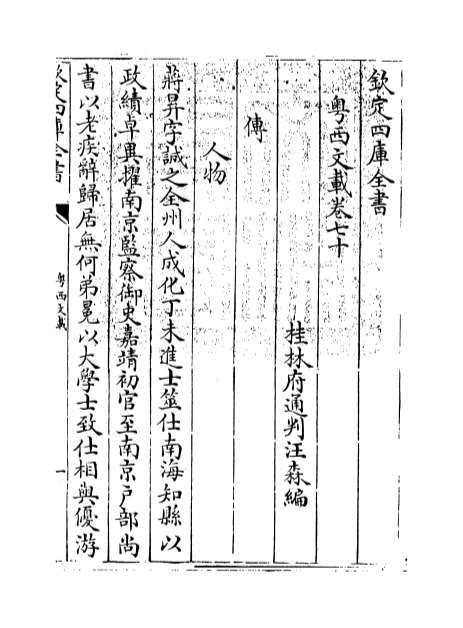 欽定四庫全書
粵西文載卷七十
桂林府通判汪森編
傳
人物
蔣昇字誠之全州人成化丁未進士筮仕南海知縣以
政績卓異擢南京監察御史嘉靖初官至南京戶部尚
書以老疾辭歸居無何弟冕以大學士致仕相與優游
欽定四庫全書
粵西文載
一